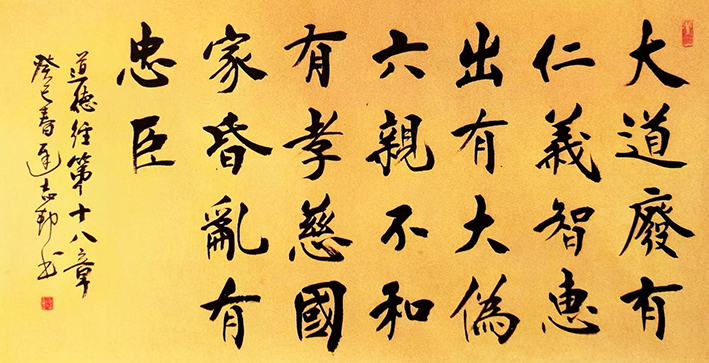 大道廢有
仁義智惠
出有大偽
六親不和
有孝慈國
家昏亂有
忠臣
道德經第十八章
癸巳春志勤书